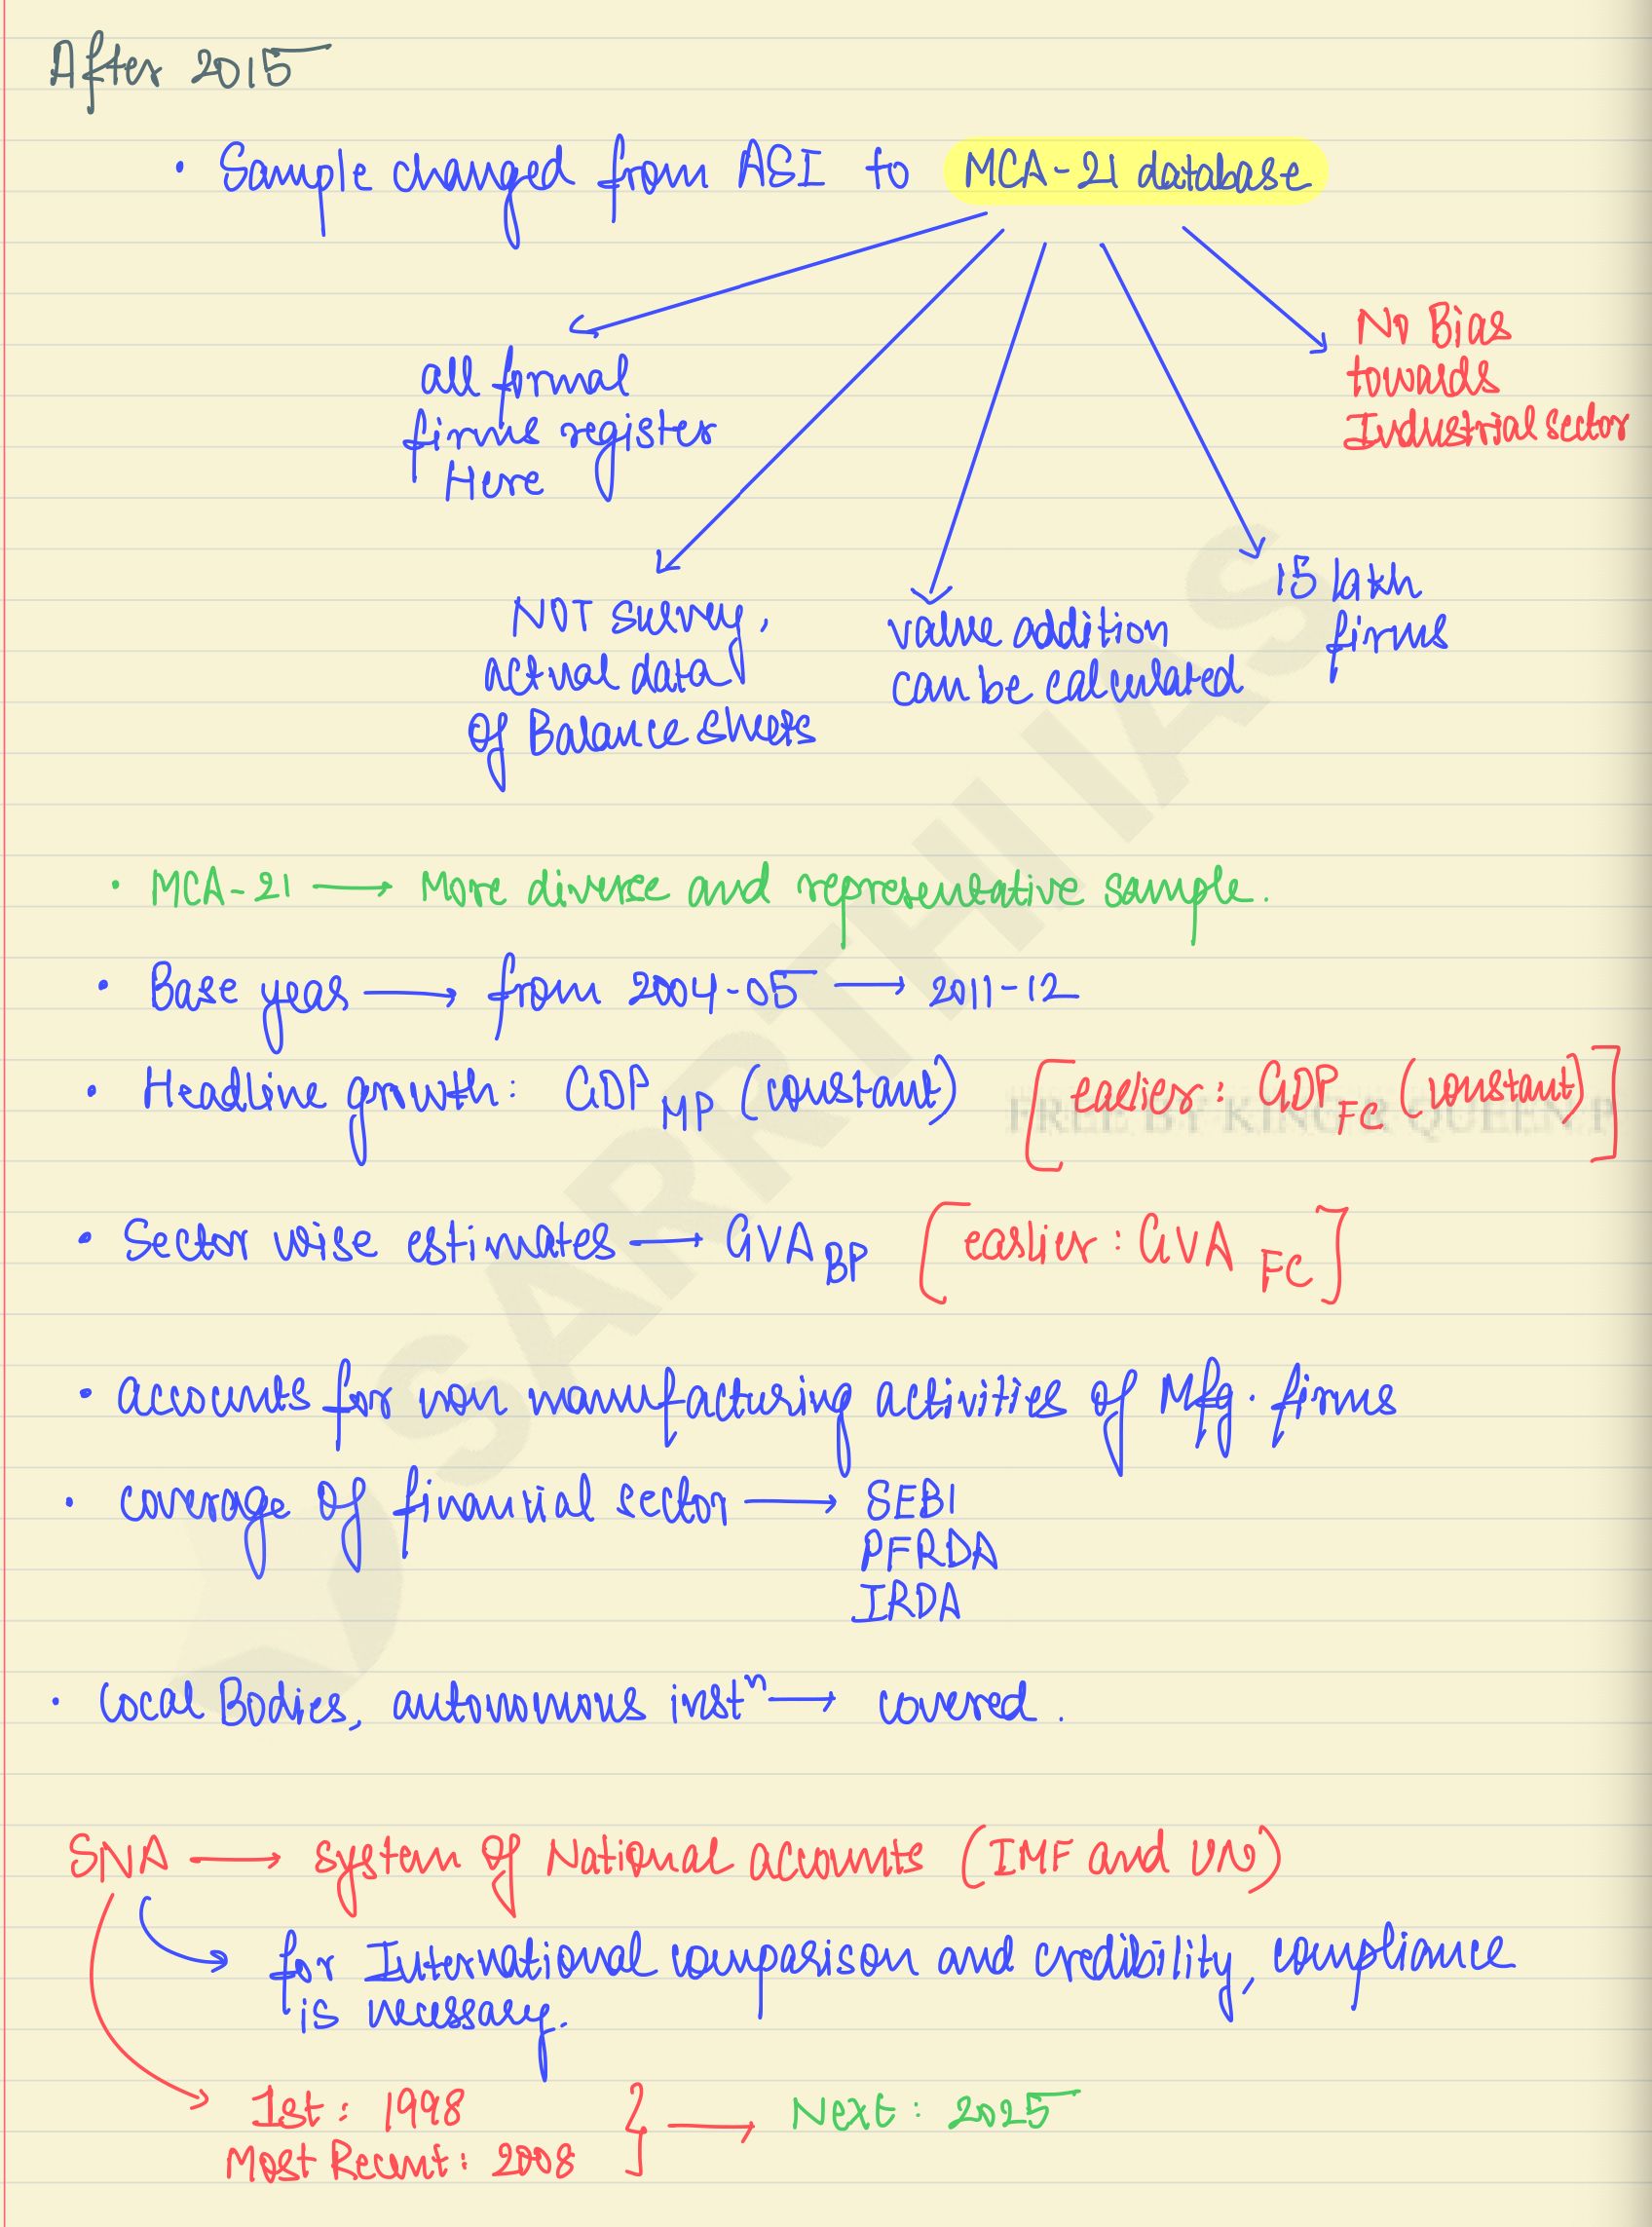 After 2015
• Sample changed from ASI to MCA-21 database
all formal
firms register
Here
NOT survey,
actual data
of Balance sheets
value addition
can be calculated
15 lakh
firms
No Bias
towards
Industrial sector
• MCA-21 → More diverse and representative sample.
• Base year → from 2004-05 → 2011-12
• Headline growth: GDP MP (constant) [earlier: GDP FC (constant)]
FREE BY KING R QUEEN P
• Sector wise estimates → GVA BP [earlier: GVA FC]
• accounts for non manufacturing activities of Mfg. firms
• coverage of financial sector → SEBI
PFRDA
IRDA
• Local Bodies, autonomous instⁿ → covered.
SNA → system of National accounts (IMF and UN)
for International comparison and credibility, compliance
is necessary.
1st: 1998
Most Recent: 2008 } → Next: 2025
SARRTHI IAS